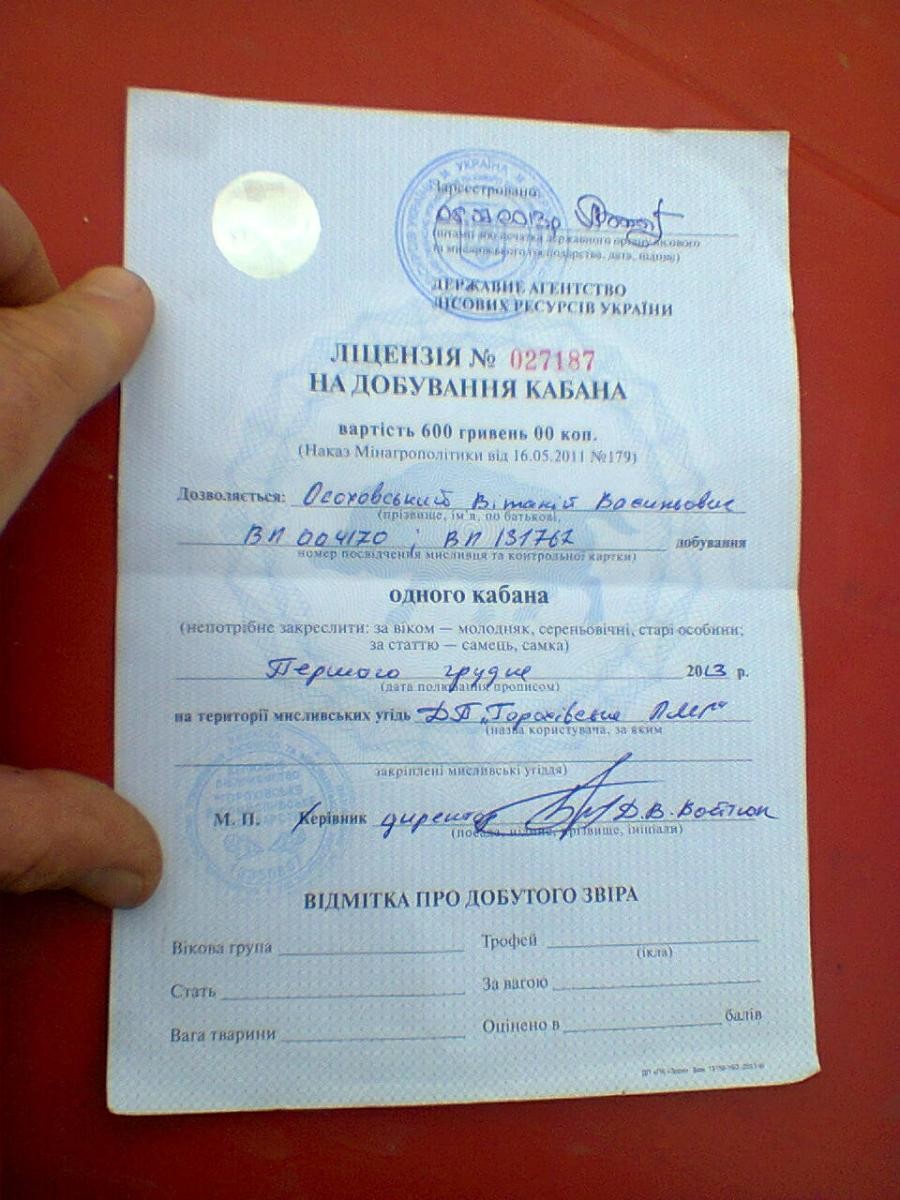 УКРАЇНА
Зареєстровано:
(штамп або печатка державного органу лісового
та мисливського господарства, дата, підпис)
ДЕРЖАВНЕ АГЕНТСТВО
ЛІСОВИХ РЕСУРСІВ УКРАЇНИ
ЛІЦЕНЗІЯ № 027187
НА ДОБУВАННЯ КАБАНА
вартість 600 гривень 00 коп.
(Наказ Мінагрополітики від 16.05.2011 №179)
Дозволяється: Осоховський Віталій Васильович
(прізвище, ім'я, по батькові,
ВП 004170 ; ВП 131762 добування
номер посвідчення мисливця та контрольної картки)
одного кабана
(непотрібне закреслити: за віком — молодняк, сереньовічні, старі особини;
за статтю — самець, самка)
Першого грудня 2013 р.
(дата полювання прописом)
на території мисливських угідь ДП „Горохівське ЛМГ"
(назва користувача, за яким
закріплені мисливські угіддя)
М. П. Керівник директор Д.В. Войтюк
(посада, підпис, прізвище, ініціали)
ВІДМІТКА ПРО ДОБУТОГО ЗВІРА
Вікова група Трофей
(ікла)
Стать За вагою
Вага тварини Оцінено в балів